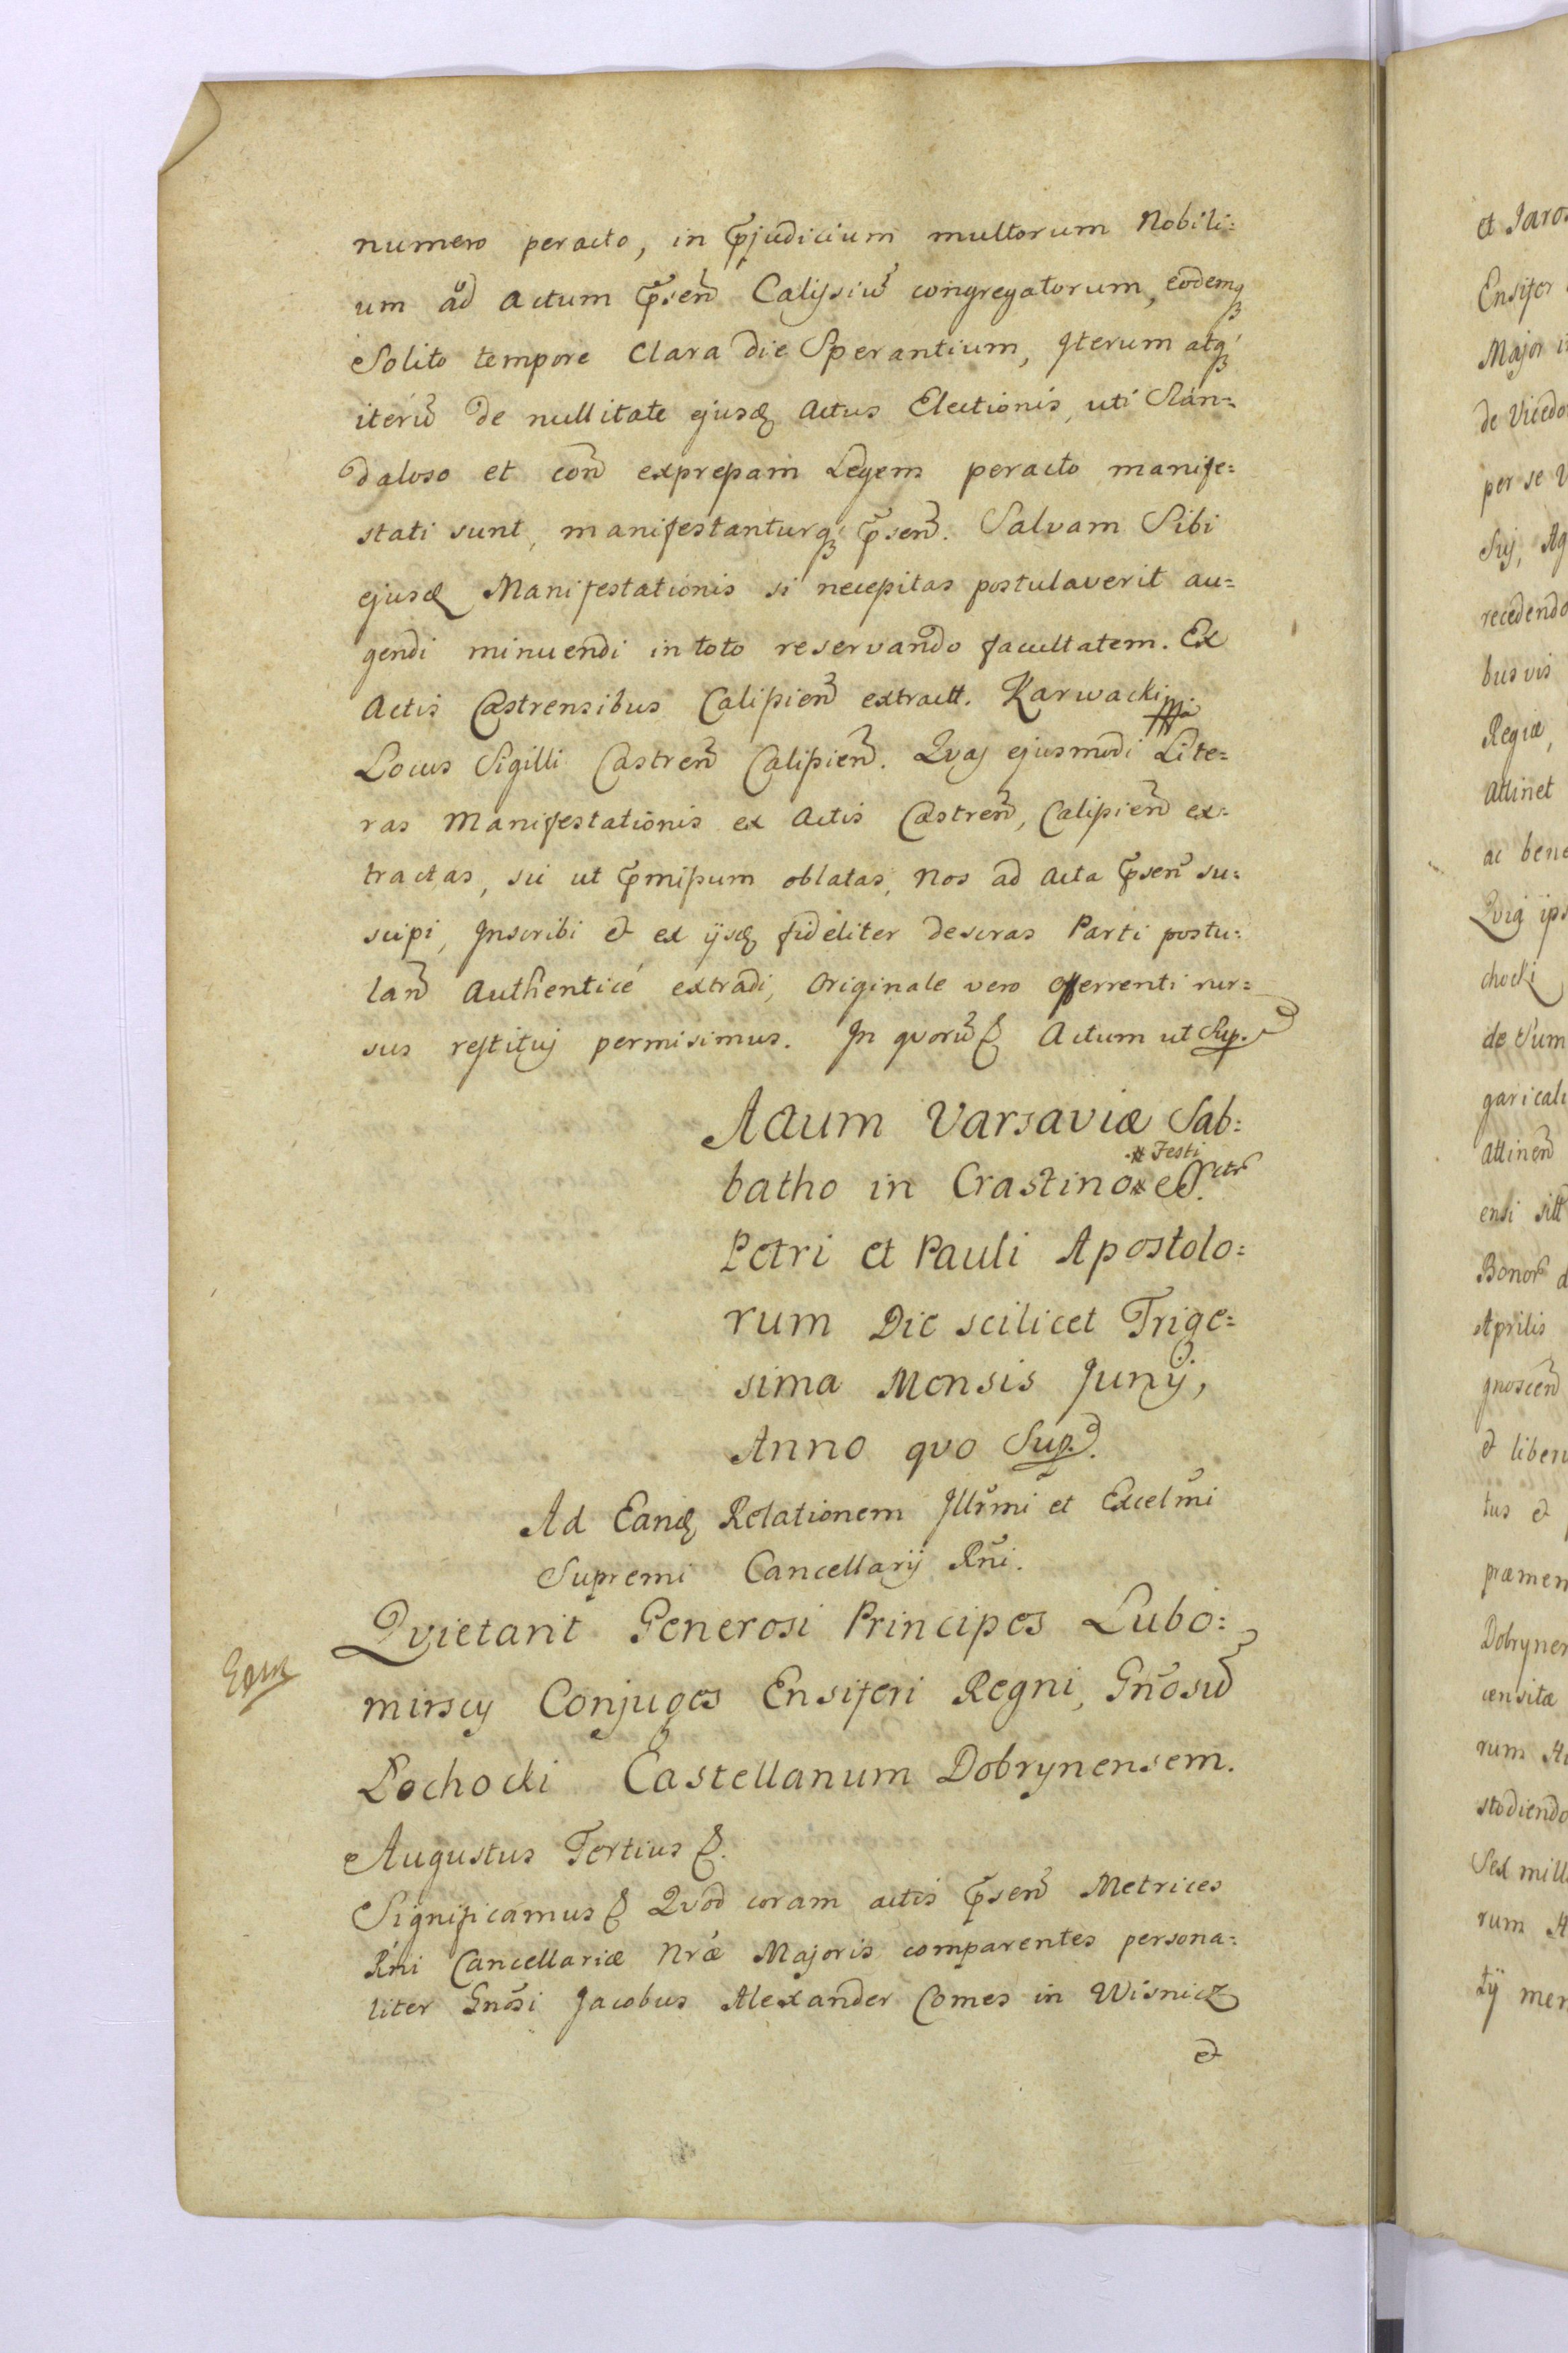 numero peracto, in p̃judicium multorum Nobili=
um ad actum p̃sen̄ Calissiu̇ congregatorum, eodemq́
Solito tempore Clara die Sperantium, Iterum atq́
iteru̇ de nullitate ejusd actus Electionis, uti Scan=
daloso et con̄ expressam Legem peracto manife=
stati sunt, manifestanturq́ p̃sen̄. Salvam Sibi
ejusd Manifestationis si necessitas postulaverit au=
gendi minuendi in toto reservando facultatem. Ex
Actis Castrensibus Calissien̄ extractt. Karwacki
Locus Sigilli Castren̄ Calissien̄. Qvas ejusmodi Lite=
ras Manifestationis ex Actis Castren̄, Calissien̄ ex=
tractas, sic ut p̃missum oblatas, Nos ad Acta p̃sen̄ su=
scipi, Inscribi & ex ijsd fideliter descras Parti postu=
lan̄ Authenticé extradi, Originale vero Offerrenti rur=
sus restitui permisimus. In qvoru̇ &. Actum ut Sup.
Actum Varsaviæ Sab=
batho in Crastino # SS.ctr̄
# Festi
Petri et Pauli Apostolo=
rum Die scilicet Trige=
sima Mensis Junÿ,
Anno qvo Sup.
Ad Eand Relationem Illr̄mi et Excelm̄i
Supremi Cancellarij Rn̄i.
Qvietant Generosi Principes Lubo=
mirscy Conjuges Ensiferi Regni, Gn̄osu̇
Łochocki Castellanum Dobrynensem.
Augustus Tertius &.
Significamus & Qvod coram actis p̃sen̄ Metrices
Rn̄i Cancellariæ Nræ Majoris comparentes persona=
liter Gn̄osi Jacobus Alexander Comes in Wisnicz
&
et Jaros
Ensifer
Major i
de Vicedo
per se V
Sui, Aq
recedendo
busvis
Regiæ,
attinet
ac bene
Qvia ips
chocki
de Sum
garicali
attinen̄
ensi sitt
Bonor̄ d
Aprilis
gnoscen̄
& liber
tus &
præmen
Dobryner
censita
rum
stodiendo
Sex mill
rum
tÿ men